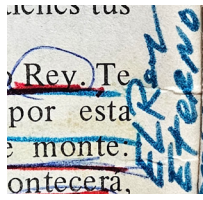 tienes tus
Rev. Te
por esta
e monte.
ontecerá,
EL Rey
Eterno